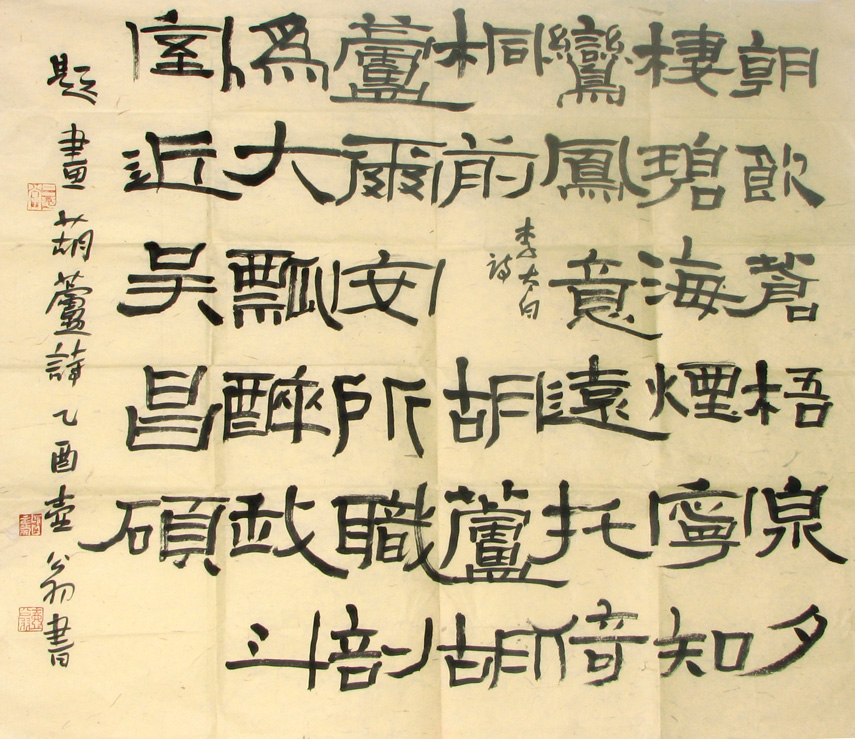 朝飲蒼梧泉夕
棲碧海煙寧知
鸞鳳意遠托倚
桐前
李太白
詩
胡蘆胡
蘆爾安所職剖
爲大瓢醉我斗
室近吳昌碩
題畫葫蘆詩乙酉壺翁書